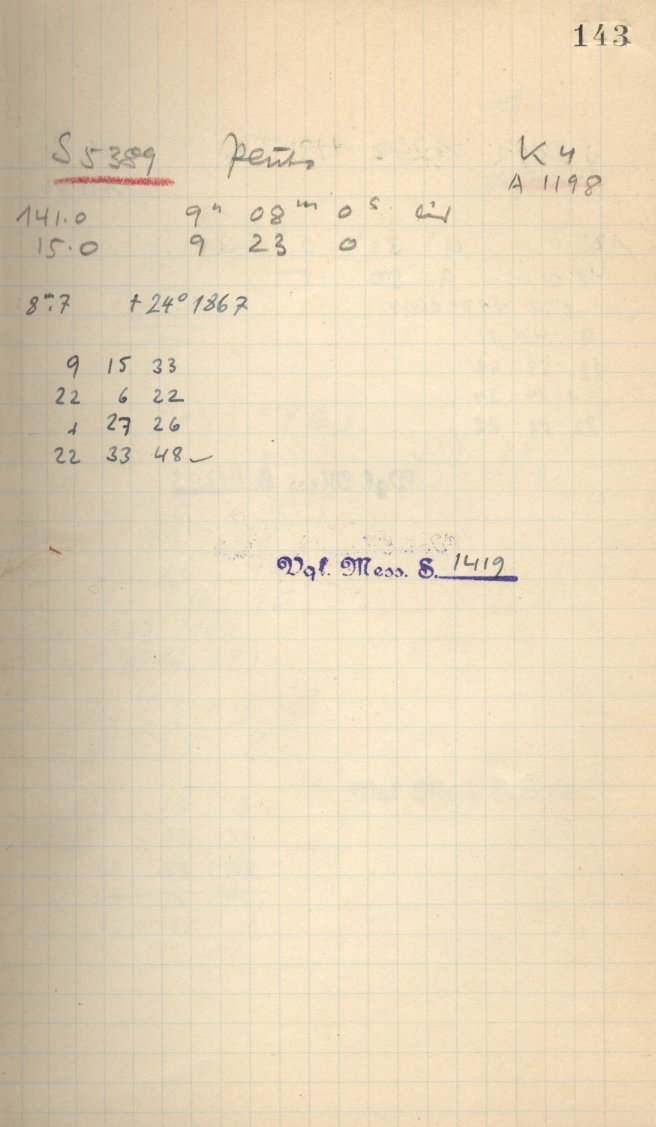 143
S 5389 K 4
A 1198
141.0 9ʰ 08ᵐ 0ˢ
15.0 9 23 0
8ᵐ.7 +24° 1867
9 15 33
22 6 22
+ 27 26
22 33 48
Vgl. Mess. S. 1419